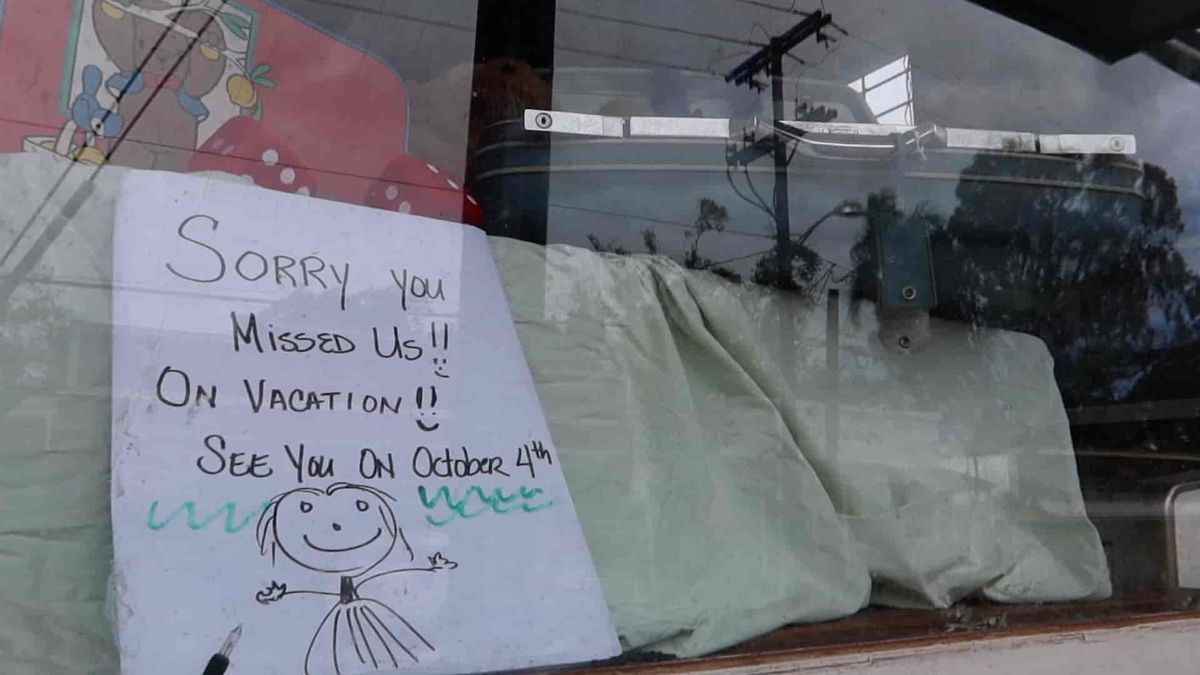 SORRY you
MISSED US!!
ON VACATION!!
SEE YOU ON October 4th